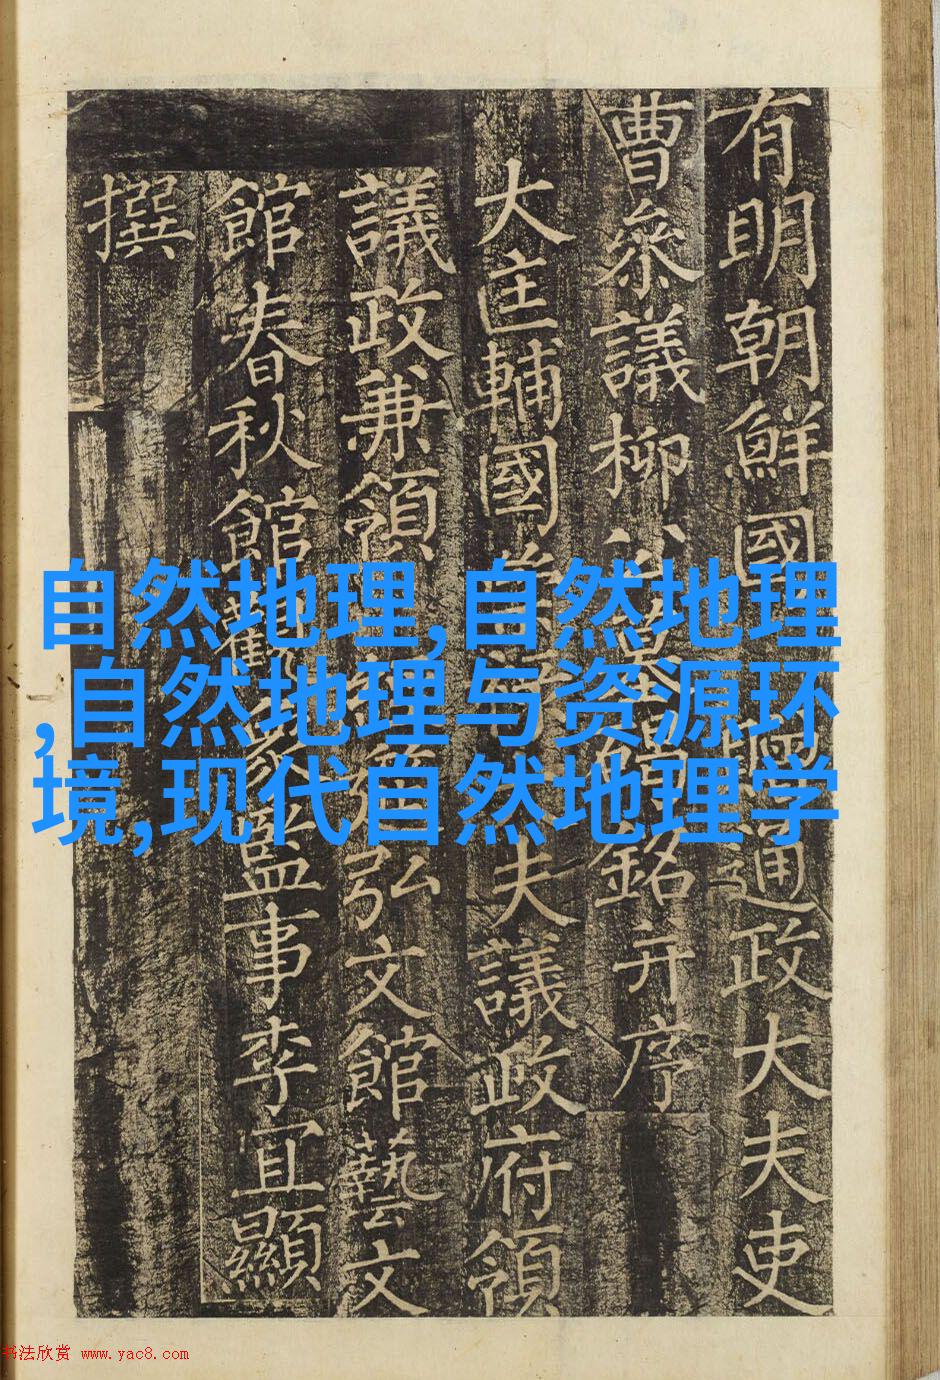 有明朝鮮國通政大夫吏
曹參議柳公墓碣銘并序
大匡輔國夫議政府領
議政兼領弘文館藝文
館春秋館觀象監事李宜顯
撰
自然地理,自然地理
,自然地理与资源环
境,现代自然地理学
书法欣赏 www.yac8.com